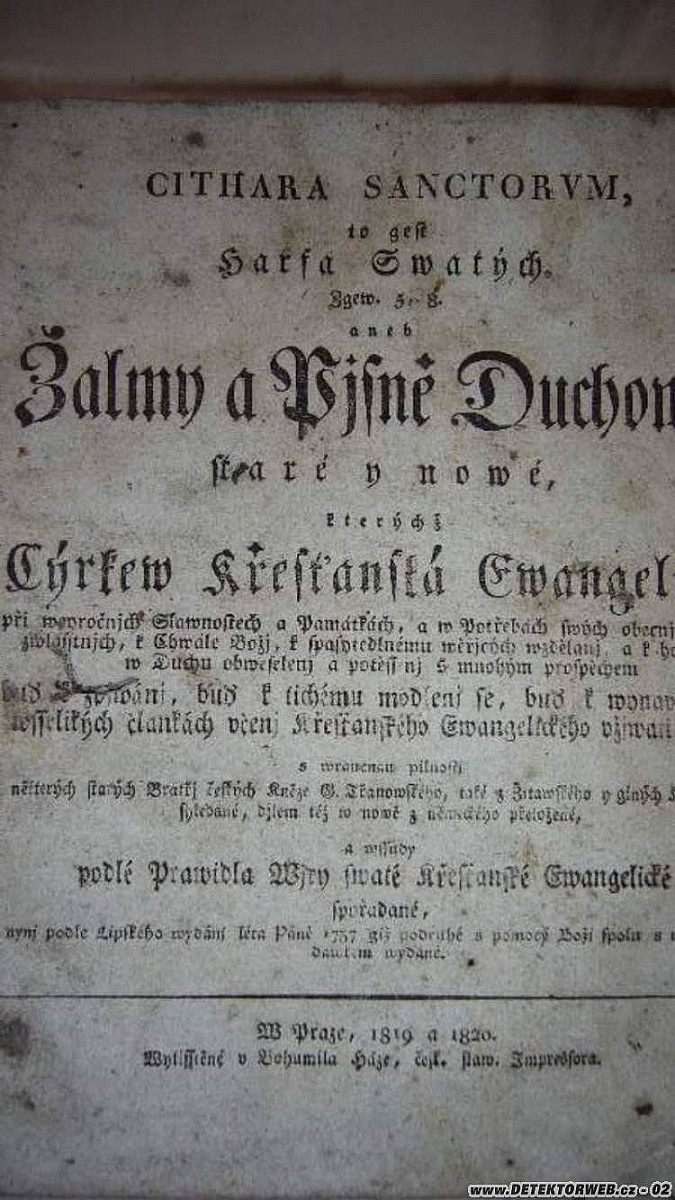 CITHARA SANCTORVM,
to gest
Harfa Swatých.
Zgew. 5, 8.
aneb
Žalmy a Pjsně Duchow
staré y nowé,
kterýchž
Cýrkew Křesťanská Ewangel
při weyročnjch Slawnostech a Památkách, a w Potřebách swých obecnj
zwlásstnjch, k Chwále Božj, k spasytedlnému wěřjcých wzdělánj, a k
w Duchu obweselenj a potěssenj s mnohým prospěchem
buď zpjwánj, buď k tichému modlenj se, buď k
wsselikých člankách včenj Křesťanského Ewangelického vžjwati
s wraucnau pilnostj
některých starých Bratřj českých Kněze G. Třanowského, také z Žitawského y giných
shledané, djlem též w nowě z německého přeložené,
a wssudy
podlé Prawidla Wjry swaté Křesťanské Ewangelické
spořádané,
nynj podle Lipského wydánj léta Páně 1737 giž podruhé s pomocý Božj spolu s
dawkem wydané.
W Praze, 1819 a 1820.
Wytisstěné v Bohumila Háze, česk. staw. Impressora.
www.DETEKTORWEB.cz - 02